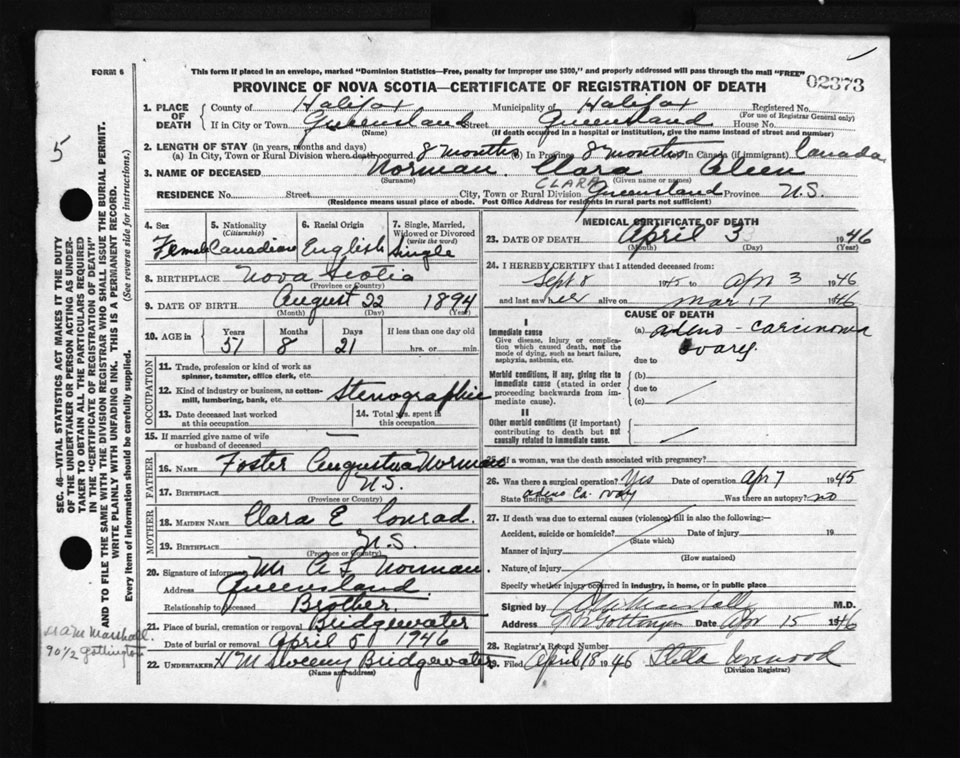 FORM 6
This form if placed in an envelope, marked "Dominion Statistics—Free, penalty for improper use $300," and properly addressed will pass through the mail "FREE"
PROVINCE OF NOVA SCOTIA—CERTIFICATE OF REGISTRATION OF DEATH
02373
1. PLACE OF DEATH
County of Halifax Municipality of Halifax Registered No.
(For use of Registrar General only)
If in City or Town Queensland Street Queensland House No.
(Name) (If death occurred in a hospital or institution, give the name instead of street and number)
2. LENGTH OF STAY (in years, months and days)
(a) In City, Town or Rural Division where death occurred. 8 months (b) In Province 8 months In Canada (if immigrant) Canada
3. NAME OF DECEASED Norman. Clara Eileen
(Surname) (Given name or names)
CLARA
RESIDENCE No. Street City, Town or Rural Division Queensland Province N.S.
(Residence means usual place of abode. Post Office Address for residents in rural parts not sufficient)
4. Sex Female
5. Nationality (Citizenship) Canadian
6. Racial Origin English
7. Single, Married, Widowed or Divorced (write the word) Single
8. BIRTHPLACE Nova Scotia
(Province or Country)
9. DATE OF BIRTH August 22 1894
(Month) (Day) (Year)
10. AGE in Years Months Days If less than one day old
51 8 21 hrs. or min.
OCCUPATION
11. Trade, profession or kind of work as spinner, teamster, office clerk, etc.
12. Kind of industry or business, as cotton-mill, lumbering, bank, etc. Stenographic
13. Date deceased last worked at this occupation
14. Total yrs. spent in this occupation
15. If married give name of wife or husband of deceased —
FATHER
16. NAME Foster Augustus Norman
17. BIRTHPLACE N.S.
(Province or Country)
MOTHER
18. MAIDEN NAME Clara E Conrad.
19. BIRTHPLACE N.S.
(Province or Country)
20. Signature of informant Mr A F Norman.
Address Queensland.
Relationship to deceased Brother.
21. Place of burial, cremation or removal Bridgewater
Date of burial April 5 1946
22. UNDERTAKER H M Sweeny Bridgewater
(Name and address)
MEDICAL CERTIFICATE OF DEATH
23. DATE OF DEATH April 3 1946
(Month) (Day) (Year)
24. I HEREBY CERTIFY that I attended deceased from:
Sept 8 1945 to Apr 3 1946
and last saw her alive on Mar 17 1946
CAUSE OF DEATH
I
Immediate cause
Give disease, injury or complication which caused death, not the mode of dying, such as heart failure, asphyxia, asthenia, etc.
(a) adeno-carcinoma
ovary.
due to
Morbid conditions, if any, giving rise to immediate cause (stated in order proceeding backwards from immediate cause).
(b)
due to
(c)
II
Other morbid conditions (if important) contributing to death but not causally related to immediate cause.
25. If a woman, was the death associated with pregnancy?
26. Was there a surgical operation? Yes Date of operation Apr 7 1945
State findings adeno Ca. ovary Was there an autopsy? no
27. If death was due to external causes (violence) fill in also the following:—
Accident, suicide or homicide? Date of injury 19
(State which)
Manner of injury
(How sustained)
Nature of injury
Specify whether injury occurred in industry, in home, or in public place
Signed by M.D.
Address Gottingen Date Apr 15 1946
28. Registrar's Record Number
29. Filed April 18 1946 Stella
(Division Registrar)
5
SEC. 46—VITAL STATISTICS ACT MAKES IT THE DUTY
OF THE UNDERTAKER OR PERSON ACTING AS UNDER-
TAKER TO OBTAIN ALL THE PARTICULARS REQUIRED
IN THE "CERTIFICATE OF REGISTRATION OF DEATH"
AND TO FILE THE SAME WITH THE DIVISION REGISTRAR WHO SHALL ISSUE THE BURIAL PERMIT.
WRITE PLAINLY WITH UNFADING INK. THIS IS A PERMANENT RECORD.
Every item of information should be carefully supplied. (See reverse side for instructions.)
Marshall.
90 1/2 Gottington